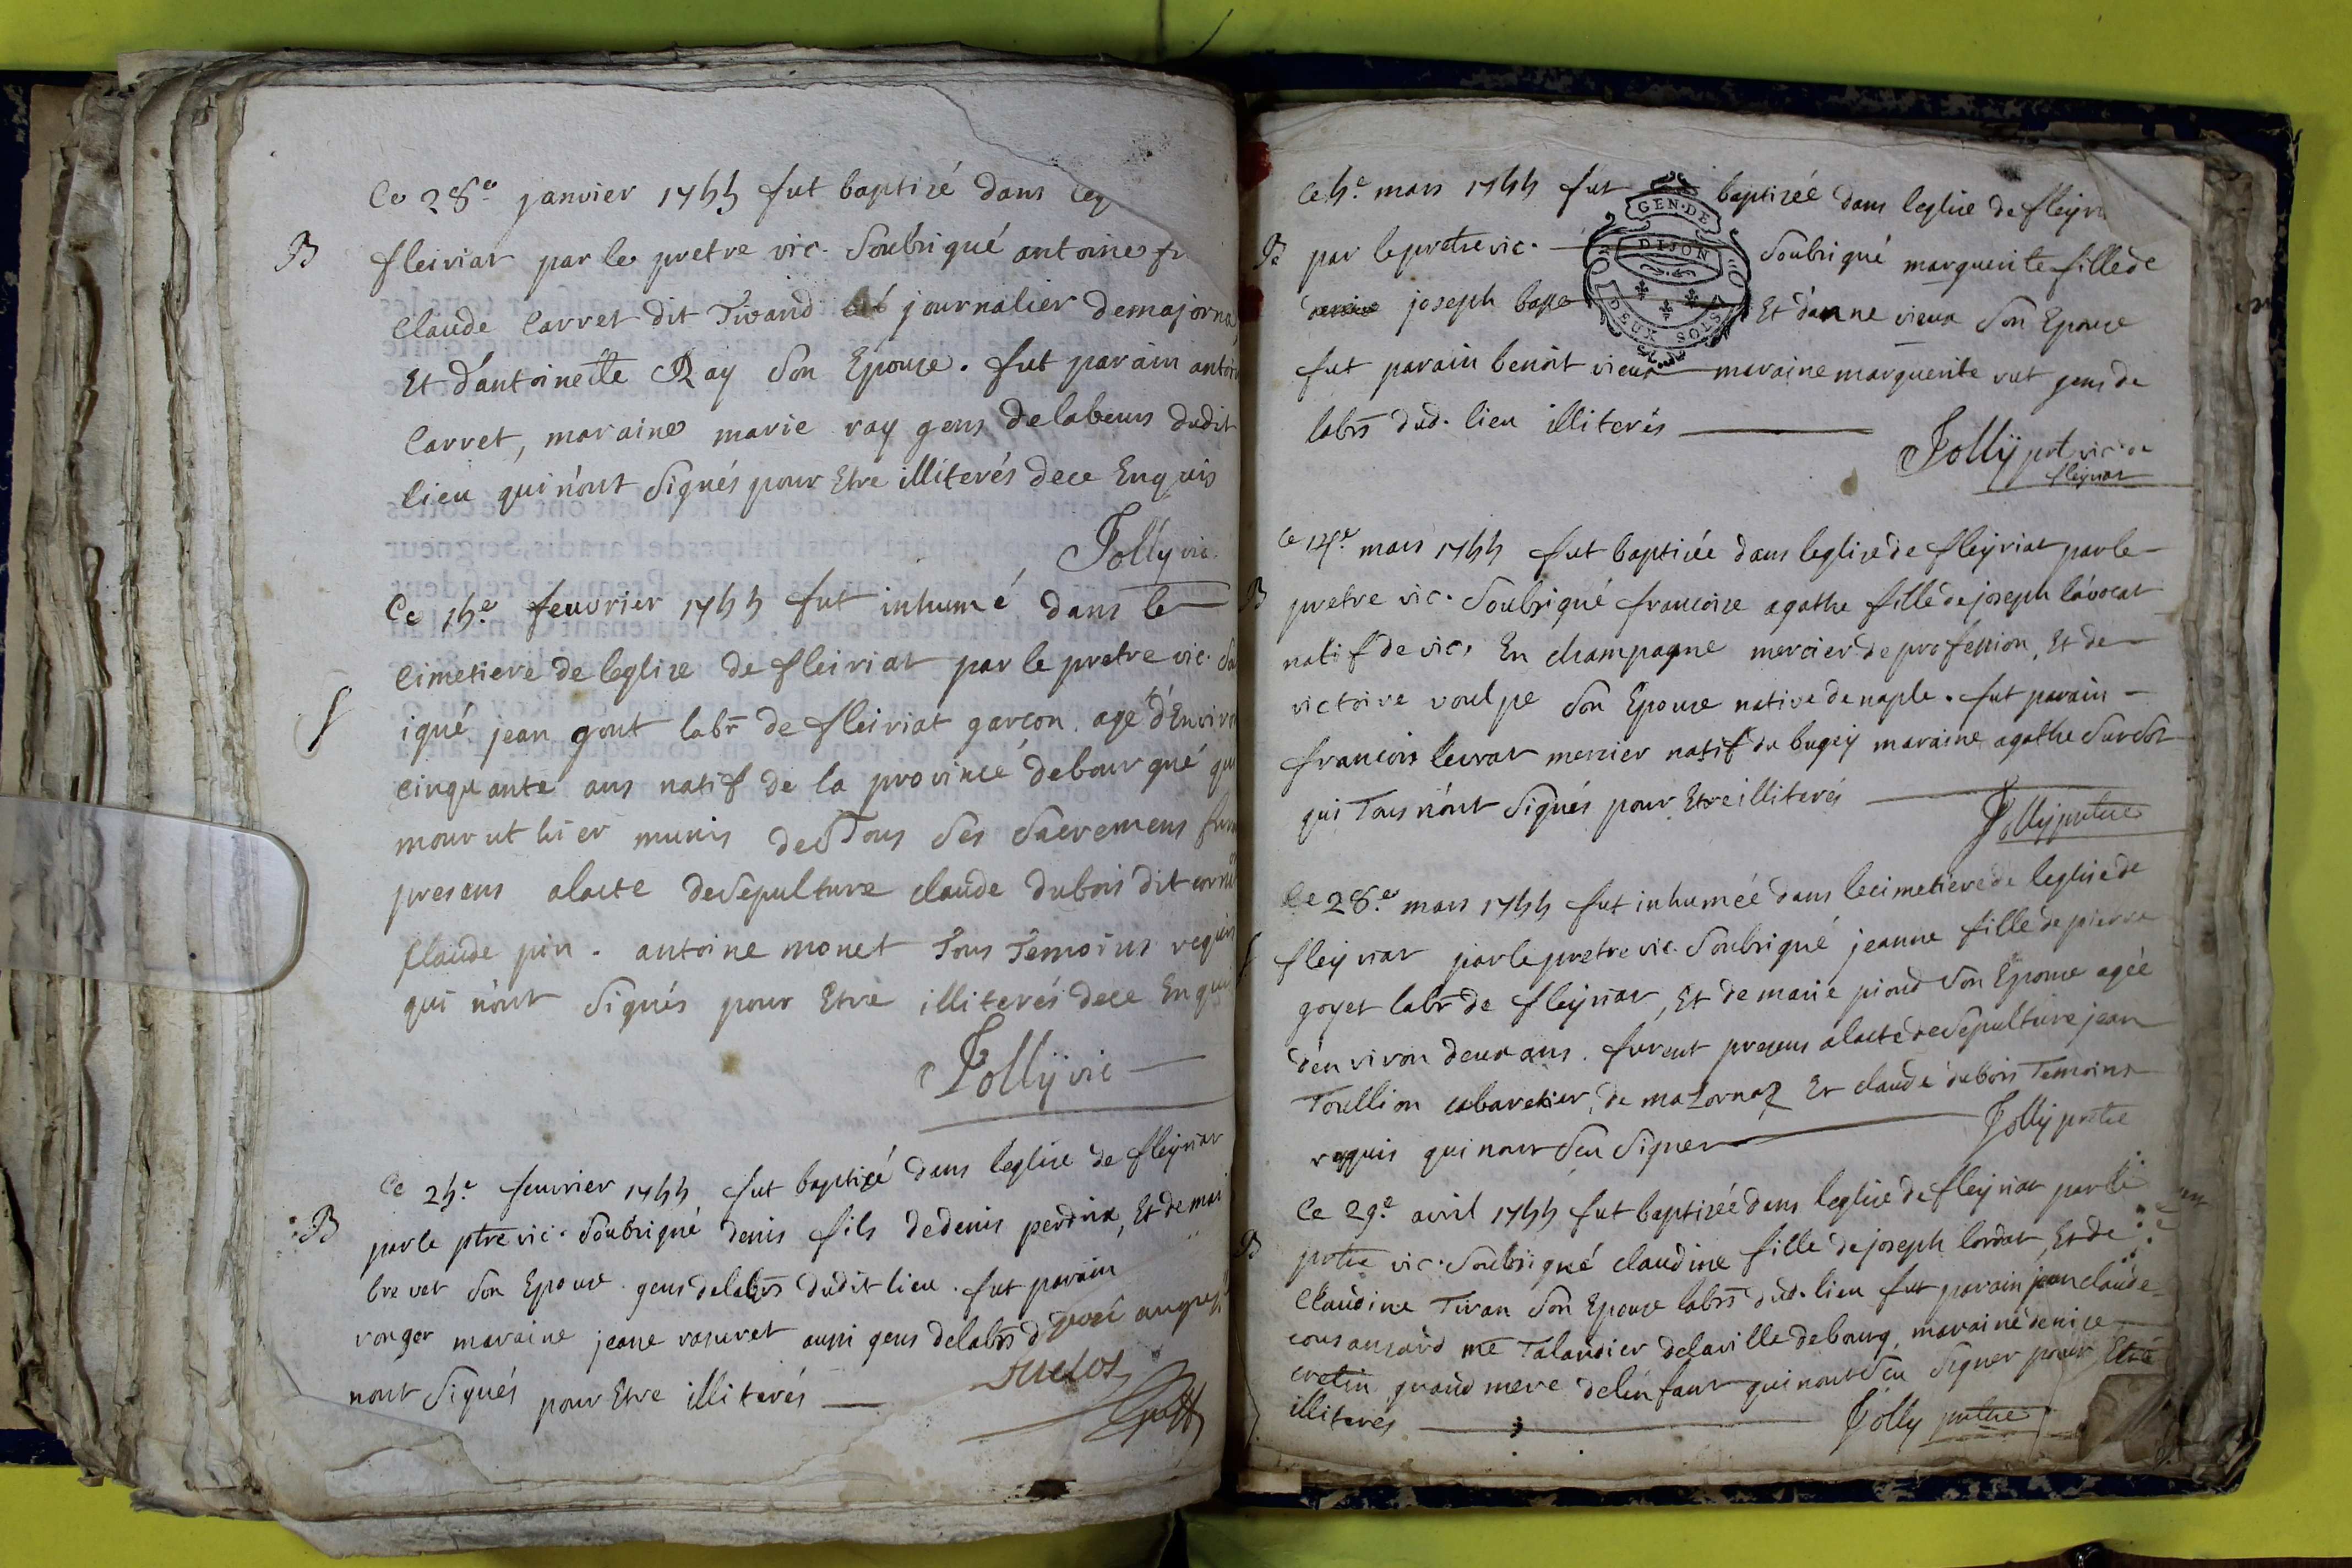 Ce 28e janvier 1744 fut baptizé dans leg
B
fleiriat par le pretre vic. Soubsigné antoine
Claude Carret dit Tivand journalier demajorna
Et d'antoinette Ray Son Epouze. fut parain antoi
Carret, maraine marie ray gens delabeurs dudit
lieu qui n'ont Signés pour Etre illiterés dece Enquis
Jolly vic.
Ce 14e feuvrier 1744 fut inhumé dans le
Cimetiere de leglize de fleiriat par le pretre vic. Sou
S
igné jean gout labr de fleiriat garcon. agé d'Enviro
cinquante ans natif de la province debourgne qui
mourut hier munis de Tous Ses Sacremens fure
presens alacte deSepulture claude dubois dit
Claude pin. antoine monet Tous Temoins requis
qui n'ont Signés pour Etre illiterés dece Enquis
Jollÿ vic
Ce 24e feuvrier 1744 fut baptizé dans leglize de fleÿriat
B
parle ptre vic. Soubsigné denis fils dedenis perdrix, Et de mari
brevet Son Epouze gens delabrs dudit lieu. fut parain
ronger maraine jeane vaneret aussi gens delabrs
nont Signés pour Etre illiterés
Ce 4e mars 1744 fut baptizée dans leglize de fleÿri
GEN. DE
DIJON
DEUX SOLS
B par lepretre vic. Soubsigné marguerite fille de
joseph basse Et d'anne vieux Son Epouze
fut parain benoit vieux maraine marguerite rut gens de
labrs dud. lieu illiterés
Jollÿ prt vic de
fleÿriat
Ce 14e mars 1744 fut baptizée dans leglize de fleÿriat parle
B pretre vic. Soubsigné francoize agathe fille de joseph lavocat
natif de vic, En champagne mercier de profession, Et de
victoire voulpe Son Epouze native de naple. fut parain
francois leurat mercier natif du bugey maraine agathe Surdot
qui Tous n'ont Signés pour Etre illiterés
Jollÿ pretre
Ce 28e mars 1744 fut inhumée dans lecimetiere de leglize de
S fleÿriat parle pretre vic. Soubsigné jeanne fille de pierre
goyet labr de fleÿriat, Et de marie pioud Son Epouze agée
d'en viron deux ans. furent presens alacte deSepulture jean
Toullion cabaretier, de mazornaz Et claude dubois Temoins
requis qui nont Seu Signer
Jolly pretre
Ce 29e avril 1744 fut baptizée dans leglize de fleÿriat parle
B pretre vic. Soubsigné claudine fille de joseph lordat, Et de
Claudine Tivan Son Epouze labrs dud. lieu fut parain jean claude
me Talandier delaville debourg maraine denize
cretin grand mere delenfant qui nont Seu Signer pour Etre
illiterés
Jolly pretre